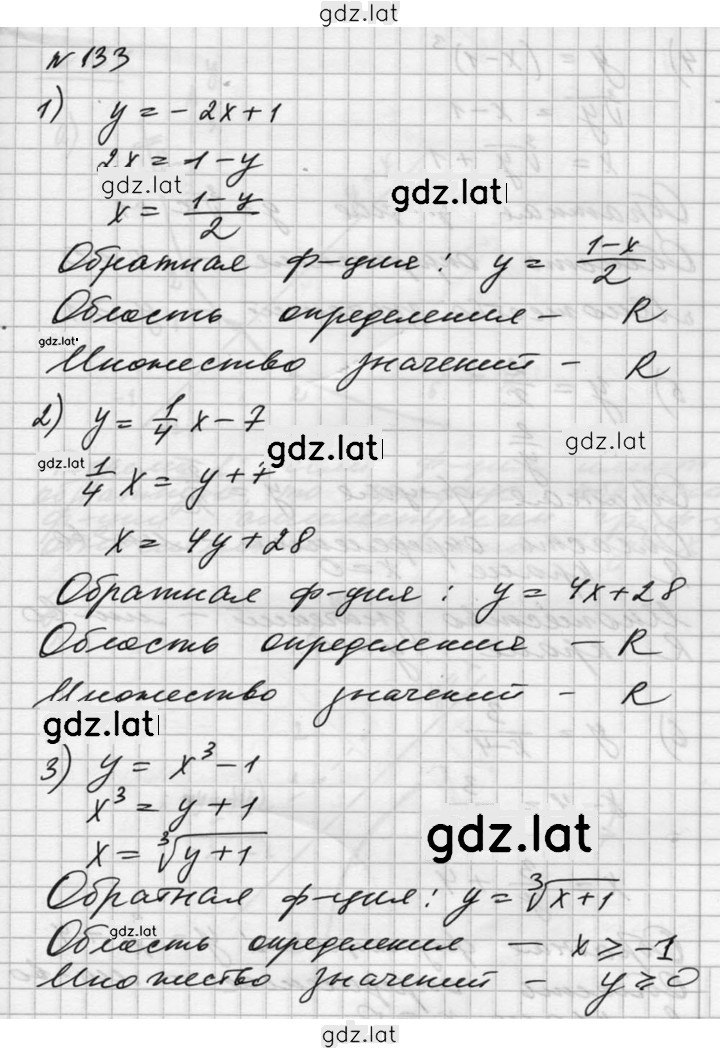 gdz.lat
№ 133
1) y = - 2x + 1
2x = 1 - y
gdz.lat
gdz.lat
x = \frac{1-y}{2}
Обратная ф-ция: y = \frac{1-x}{2}
Область определения – R
gdz.lat
Множество значений – R
2) y = \frac{1}{4} x - 7
gdz.lat
gdz.lat
gdz.lat
\frac{1}{4} x = y + 7
x = 4y + 28
Обратная ф-ция: y = 4x + 28
Область определения – R
Множество значений – R
gdz.lat
3) y = x³ - 1
x³ = y + 1
gdz.lat
x = ∛(y + 1)
Обратная ф-ция: y = ∛(x + 1)
gdz.lat
Область определения – x ⩾ -1
Множество значений – y ⩾ 0
gdz.lat